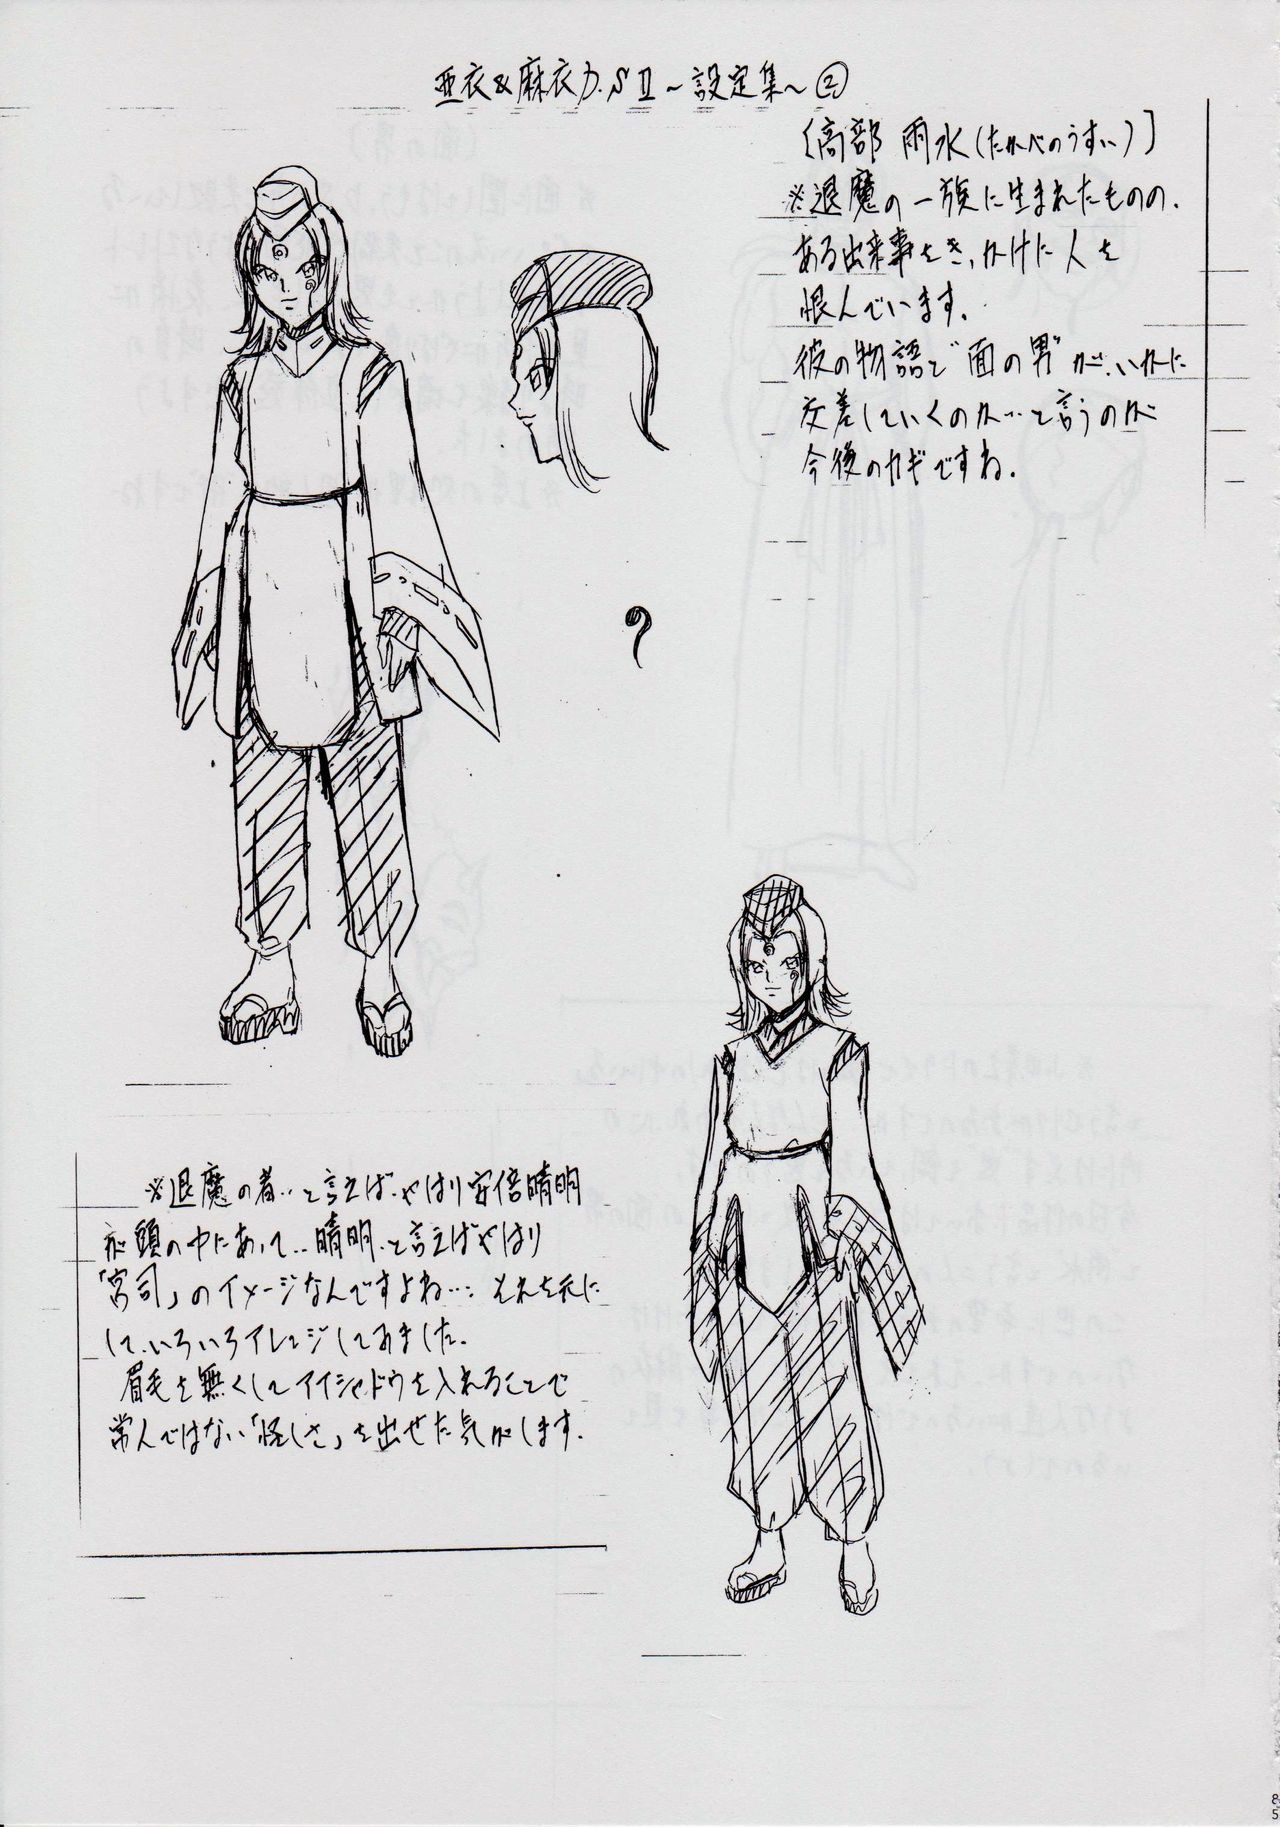 亜衣&麻衣D.SⅡ～設定集～②
〔高部 雨水(たかべのうすい)〕
※退魔の一族に生まれたものの、
ある出来事をきっかけに人を
恨んでいます。
彼の物語で"面の男"が、いかに
交差していくのか…と言うのが
今後のカギですね。
※退魔の者…と言えば、やはり安倍晴明
が頭の中にあって…晴明、と言えばやはり
「宮司」のイメージなんですよね…。それを元に
して、いろいろアレンジしてみました。
眉毛を無くしてアイシャドウを入れることで
常人ではない「怪しさ」を出せた気がします。
85